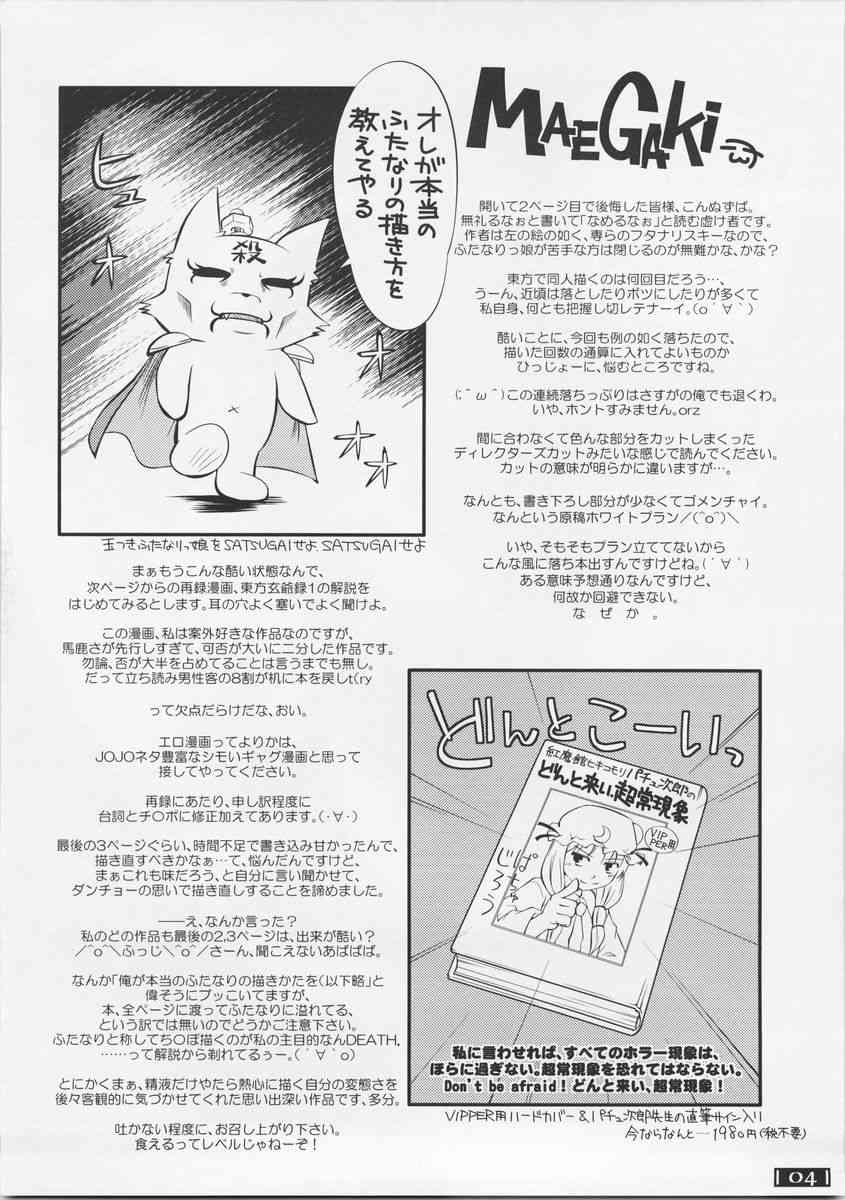 MAEGAKi
開いて2ページ目で後悔した皆様、こんぬずば。
無礼るなぉと書いて「なめるなぉ」と読む虚け者です。
作者は左の絵の如く、専らのフタナリスキーなので、
ふたなりっ娘が苦手な方は閉じるのが無難かな、かな？
東方で同人描くのは何回目だろう…、
うーん、近頃は落としたりボツにしたりが多くて
私自身、何とも把握し切レテナーイ。(o´∀｀)
酷いことに、今回も例の如く落ちたので、
描いた回数の通算に入れてよいものか
ひっじょーに、悩むところですね。
(;＾ω＾)この連続落ちっぷりはさすがの俺でも退くわ。
いや、ホントすみません。orz
間に合わなくて色んな部分をカットしまくった
ディレクターズカットみたいな感じで読んでください。
カットの意味が明らかに違いますが…。
なんとも、書き下ろし部分が少なくてゴメンチャイ。
なんという原稿ホワイトプラン／(^o^)＼
いや、そもそもプラン立ててないから
こんな風に落ち本出すんですけどね。(´∀｀)
ある意味予想通りなんですけど、
何故か回避できない。
な ぜ か 。
オレが本当の
ふたなりの描き方を
教えてやる
ヒュ
殺
玉つきふたなりっ娘をSATSUGAIせよ SATSUGAIせよ
まぁもうこんな酷い状態なんで、
次ページからの再録漫画、東方玄爺録1の解説を
はじめてみるとします。耳の穴よく塞いでよく聞けよ。
この漫画、私は案外好きな作品なのですが、
馬鹿さが先行しすぎて、可否が大いに二分した作品です。
勿論、否が大半を占めてることは言うまでも無し。
だって立ち読み男性客の8割が机に本を戻しt(ry
って欠点だらけだな、おい。
エロ漫画ってよりかは、
JOJOネタ豊富なシモいギャグ漫画と思って
接してやってください。
再録にあたり、申し訳程度に
台詞とチ○ポに修正加えてあります。(・∀・)
最後の3ページぐらい、時間不足で書き込み甘かったんで、
描き直すべきかなぁ…て、悩んだんですけど、
まぁこれも味だろう、と自分に言い聞かせて、
ダンチョーの思いで描き直しすることを諦めました。
――え、なんか言った？
私のどの作品も最後の2,3ページは、出来が酷い？
／^o^＼ふっじ＼^o^／さーん、聞こえないあばばば。
なんか「俺が本当のふたなりの描きかたを(以下略」と
偉そうにブッこいてますが、
本、全ページに渡ってふたなりに溢れてる、
という訳では無いのでどうかご注意下さい。
ふたなりと称してち○ぽ描くのが私の主目的なんDEATH.
……って解説から剥れてるぅー。(´∀｀o)
とにかくまぁ、精液だけやたら熱心に描く自分の変態さを
後々客観的に気づかせてくれた思い出深い作品です、多分。
吐かない程度に、お召し上がり下さい。
食えるってレベルじゃねーぞ！
どんとこーいっ
紅魔館ヒキコモリパチュ次郎の
どんと来い、超常現象
VIPPER用
ぱちゅ
じろう
私に言わせれば、すべてのホラー現象は、
ほらに過ぎない。超常現象を恐れてはならない。
Don't be afraid！どんと来い、超常現象！
VIPPER用ハードカバー＆パチュ次郎先生の直筆サイン入り
今ならなんと…1980円(税不要)
04